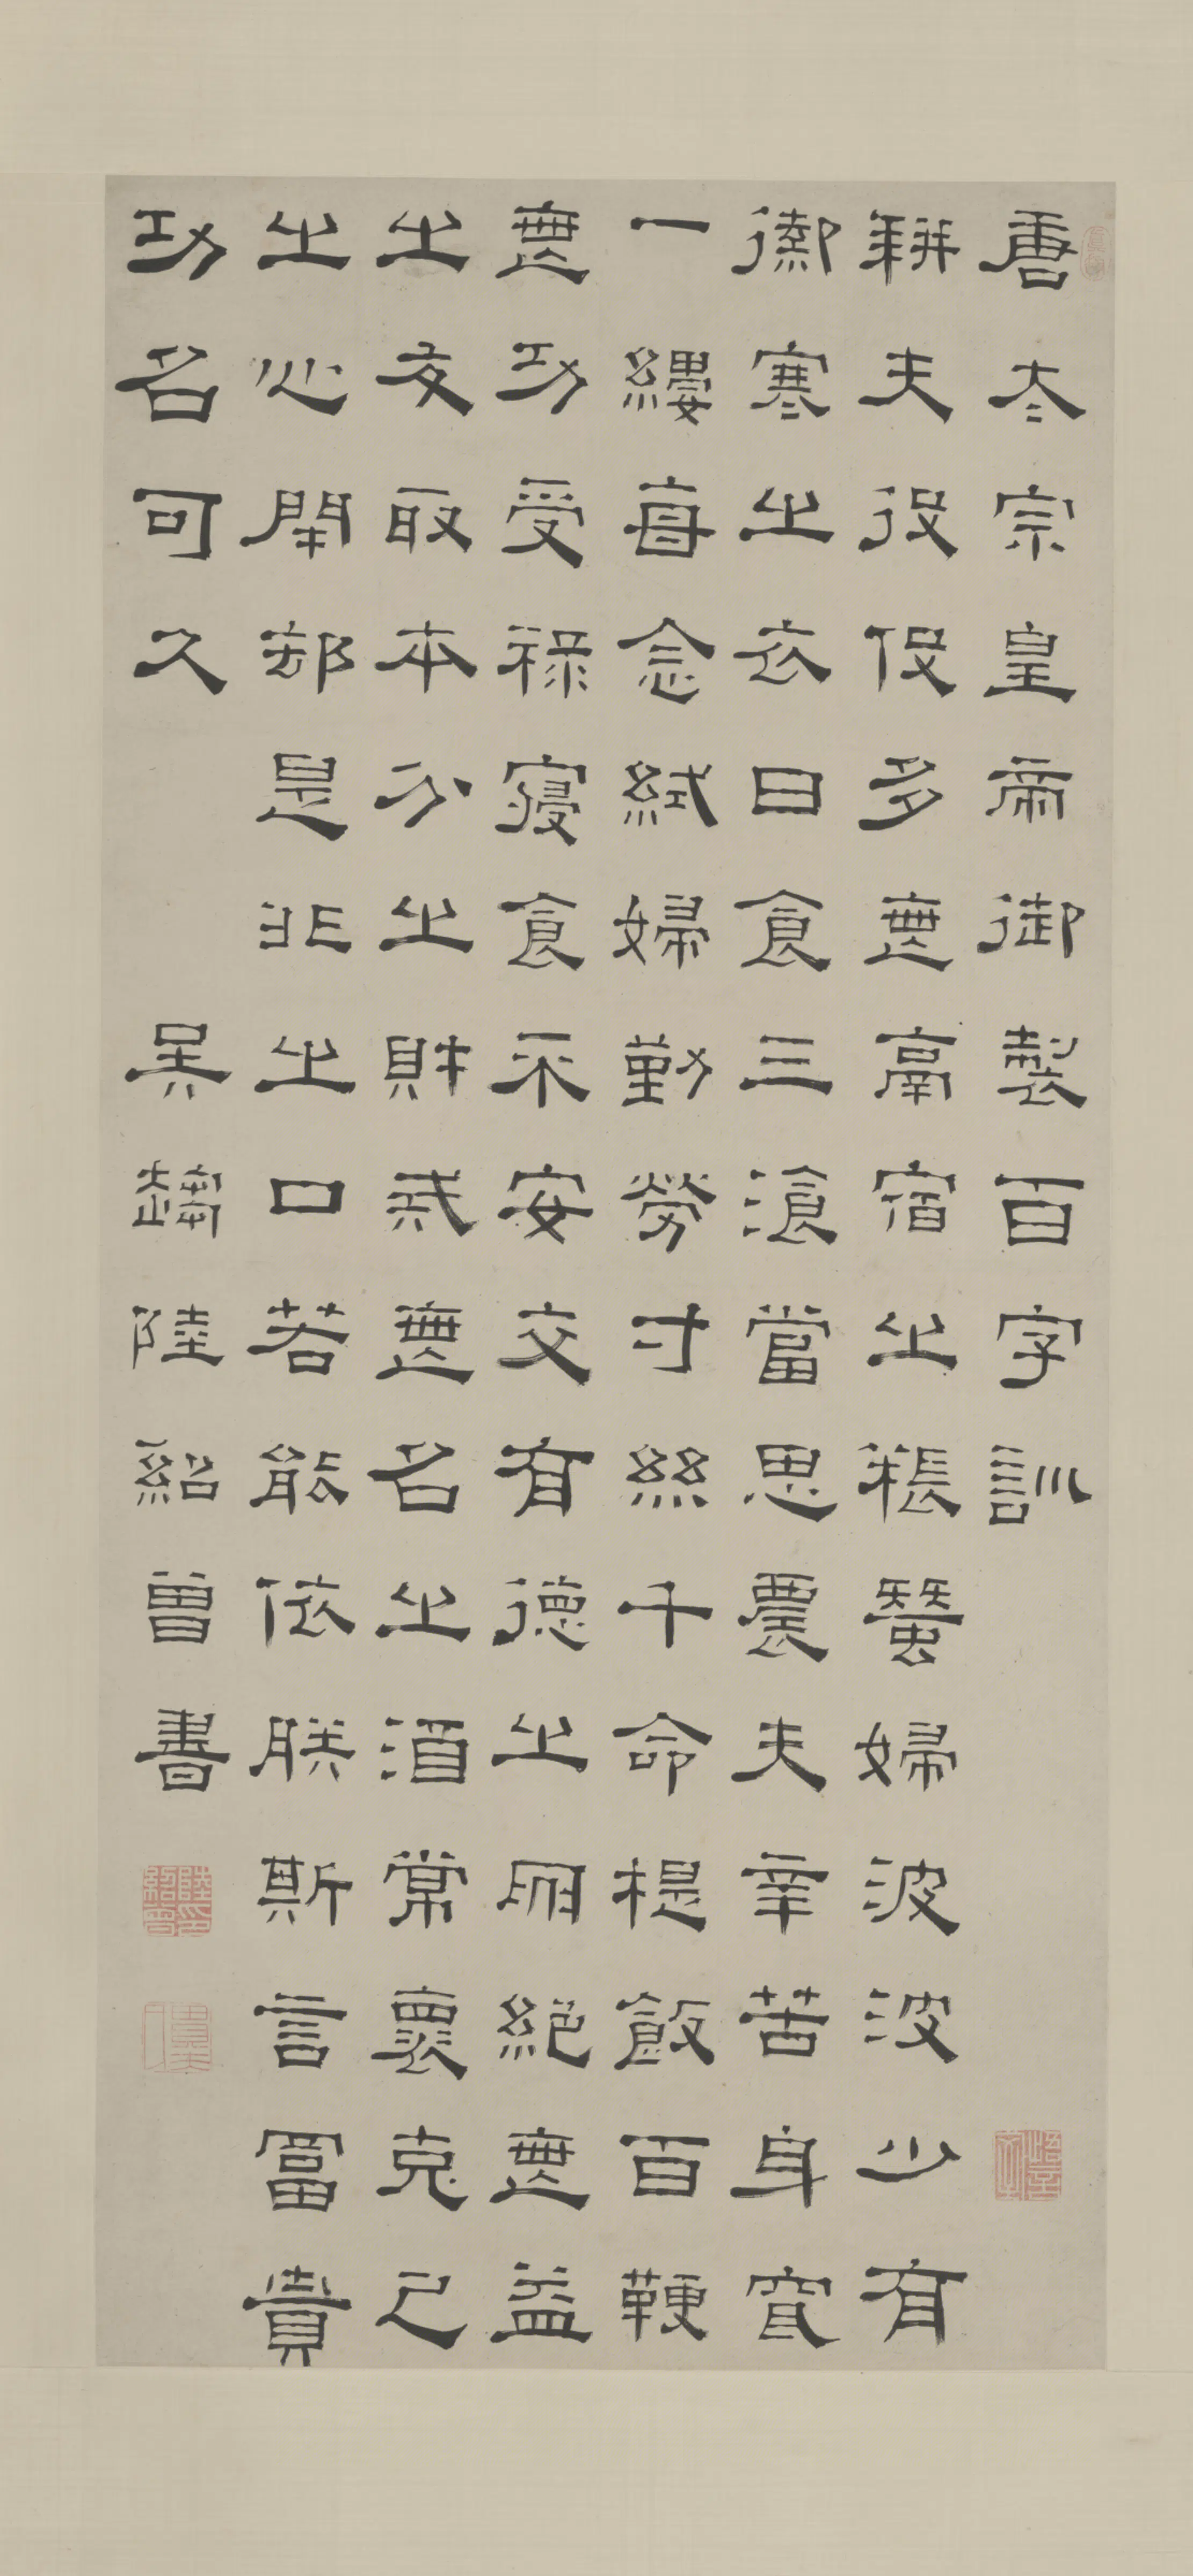 唐太宗皇帝御製百字訓
耕夫役伇多無鬲宿之粻蠶婦波波少有
禦寒之衣日食三湌當思農夫辛苦身穿
一縷每念婦勤勞寸絲千命提飯百鞭
無功受祿寢食不安交有德之朋絕無益
之友取本分之財戒無名之酒常懷克己
之心閉却是非之口若能依朕斯言富貴
功名可久 吳趨陸紹曾書
陸紹曾印